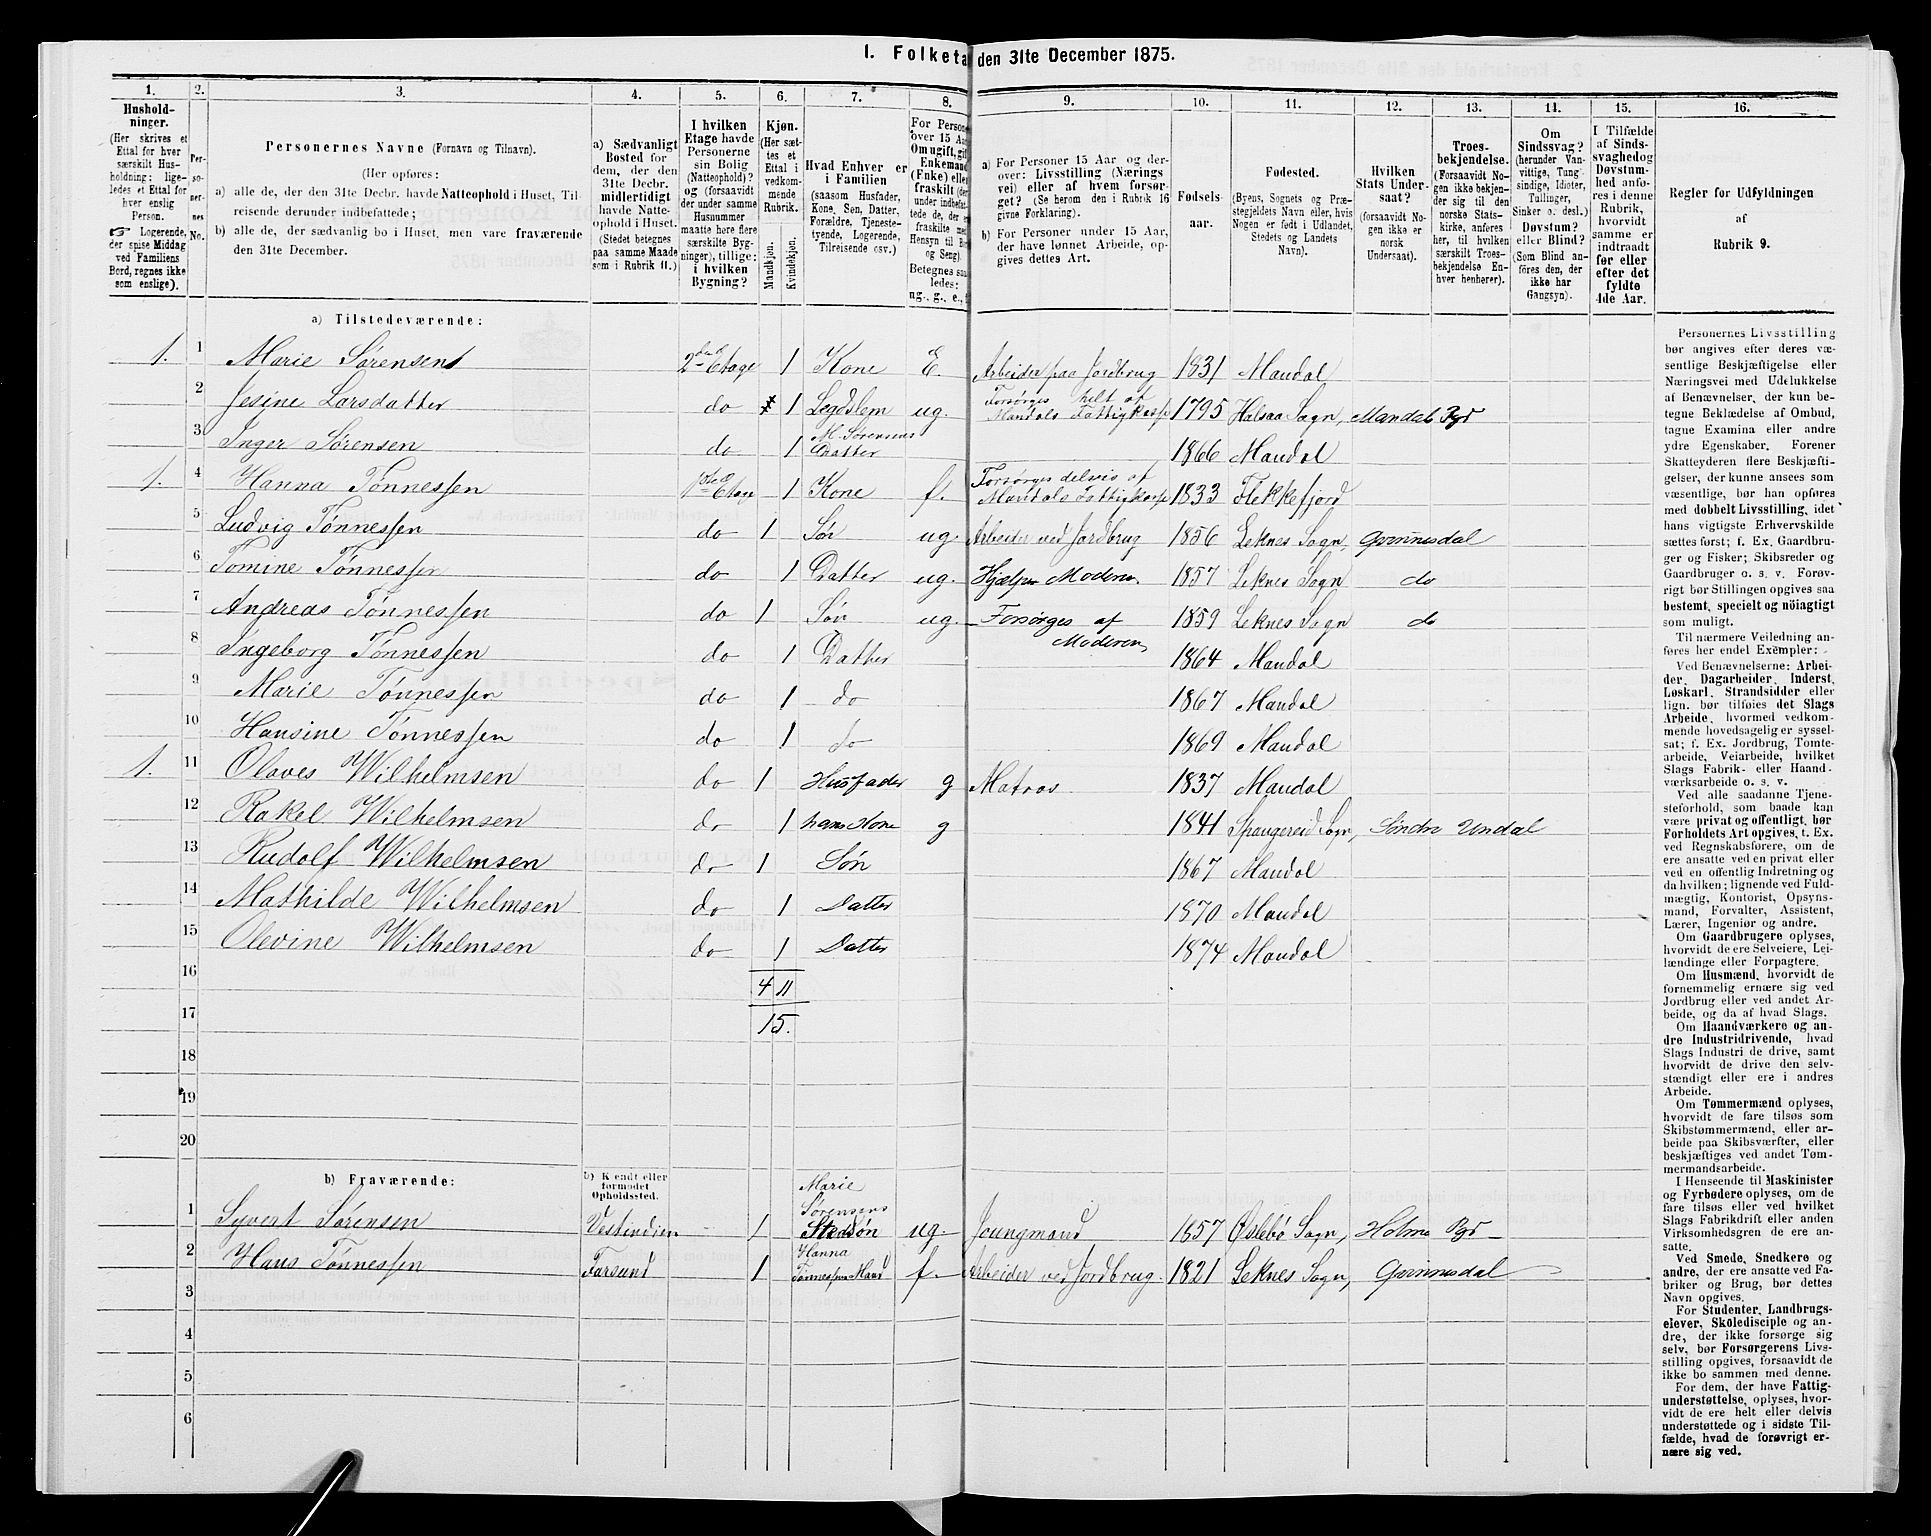 1. Folketæ den 31te December 1875.
1. 2. 3. 4. 5. 6. 7. 8. 9. 10. 11. 12. 13. 14. 15. 16.
Hushold-
ninger.
(Her skrives et
Ettal for hver
særskilt Hus-
holdning: lige-
ledes et Ettal for
hver enslig
Person.
☞ Logerende,
der spise Middag
ved Familiens
Bord, regnes ikke
som enslige).
Per-
so-
ner-
nes
No.
Personernes Navne (Fornavn og Tilnavn).
(Her opføres:
a) alle de, der den 31te Decbr. havde Natteophold i Huset, Til-
reisende derunder indbefattede;
b) alle de, der sædvanlig bo i Huset, men vare fraværende
den 31te December.
a) Sædvanligt
Bosted for
dem, der den
31te Decbr.
midlertidigt
havde Natte-
ophold i Huset.
(Stedet betegnes
paa samme Maade
som i Rubrik 11.)
I hvilken
Etage havde
Personerne
sin Bolig
(Natteophold)?
og (forsaavidt
der under samme
Husnummer
maatte høre flere
særskilte Byg-
ninger), tillige:
i hvilken
Bygning?
Kjøn.
(Her sæt-
tes et
Ettal i
vedkom-
mende
Rubrik.
Mandkjøn.
Kvindekjøn.
Hvad Enhver er
i Familien
(saasom Husfader,
Kone, Søn, Datter,
Forældre, Tjeneste-
tyende, Logerende,
Tilreisende osv.)
For Persone
over 15 Aar
Om ugift, gif
Enkemand
(Enke) elle
fraskilt (de
under indbefat-
tede de, der e
fraskilte me
Hensyn til B
og Seng).
Betegnes saa
ledes:
ug., g., e., f
a) For Personer 15 Aar og der-
over: Livsstilling (Nærings
vei) eller af hvem forsør-
get? (Se herom den i Rubrik 16
givne Forklaring).
b) For Personer under 15 Aar,
der have lønnet Arbeide, op-
gives dettes Art.
Fødsels-
aar.
Fødested.
(Byens, Sognets og Præ-
stegjeldets Navn eller, hvis
Nogen er født i Udlandet,
Stedets og Landets
Navn).
Hvilken
Stats Under-
saat?
(forsaavidt No-
gen ikke er
norsk
Undersaat).
Troes-
bekjendelse.
(Forsaavidt No-
gen ikke bekjen-
der sig til den
norske Stats-
kirke, anføres
her, til hvilken
særskilt Troes-
bekjendelse En-
hver henhører).
Om
Sindssvag?
(herunder Van-
vittige, Tung-
sindige, Idioter,
Tullinger,
Sinker o. desl.)
Døvstum?
eller Blind?
(Som Blind an-
føres den, der
ikke har
Gangsyn).
I Tilfælde
af Sinds-
svaghed og
Døvstum-
hed anfø-
res i denne
Rubrik,
hvorvidt
samme er
indtraadt
før eller
efter det
fyldte
4de Aar.
Regler for Udfyldningen
af
Rubrik 9.
a) Tilstedeværende:
1. 1 Marie Sørensen 2den Etage 1 Kone E. Arbeider paa Jordbrug 1831 Mandal
2 Jesine Larsdatter do 1 Legdslem ug. Forsørges helt af Mandals Fattigkasse 1795 Halsaa Sogn, Mandals Pgd
3 Inger Sørensen do 1 M. Sørensens Datter 1866 Mandal
1. 4 Hanna Tønnessen 1ste Etage 1 Kone f. Forsørges delvis af Mandals Fattigkasse 1833 Flekkefjord
5 Ludvig Tønnessen do 1 Søn ug. Arbeider ved Jordbrug 1856 Leknes Sogn,
6 Tomine Tønnessen do 1 Datter ug. Hjælper Moderen 1857 Leknes Sogn do
7 Andreas Tønnessen do 1 Søn ug. Forsørges af Moderen 1859 Leknes Sogn do
8 Ingeborg Tønnessen do 1 Datter 1864 Mandal
9 Marie Tønnessen do 1 do 1867 Mandal
10 Hansine Tønnessen do 1 do 1869 Mandal
1. 11 Olaves Wilhelmsen do 1 Husfader g Matros 1837 Mandal
12 Rakel Wilhelmsen do 1 hans Kone g 1841 Spangereid Sogn, Søndre Undal
13 Rudolf Wilhelmsen do 1 Søn 1867 Mandal
14 Mathilde Wilhelmsen do 1 Datter 1870 Mandal
15 Olevine Wilhelmsen do 1 Datter 1874 Mandal
16 4 11
17 15.
18
19
20
b) Fraværende:
b) Kjendt eller
formodet
Opholdssted.
1 Syvert Sørensen Vestindien 1 Marie Sørensens Stedsøn ug. Joungmand 1857 Øslebø Sogn, Holme Pgd
2 Hans Tønnessen Farsund 1 Hanna Tønnessens Mand f. Arbeider ved Jordbrug. 1821 Leknes Sogn,
3
4
5
6
Personernes Livsstilling
bør angives efter deres væ-
sentlige Beskjæftigelse eller
Næringsvei med Udelukkelse
af Benævnelser, der kun be-
tegne Beklædelse af Ombud,
tagne Examina eller andre
ydre Egenskaber. Forener
Skatteyderen flere Beskjæfti-
gelser, der kunne ansees som
væsentlige, bør han opføres
med dobbelt Livsstilling, idet
hans vigtigste Erhvervskilde
sættes først; f. Ex. Gaardbru-
ger og Fisker; Skibsreder og
Gaardbruger o. s. v. Forøv-
rigt bør Stillingen opgives saa
bestemt, specielt og nöiagtigt
som muligt.
Til nærmere Veiledning an-
føres her endel Exempler:
Ved Benævnelserne: Arbei-
der, Dagarbeider, Inderst,
Løskarl, Strandsidder eller
lign. bør tilføies det Slags
Arbeide, hvormed vedkom-
mende hovedsagelig er syssel-
sat; f. Ex. Jordbrug, Tomte-
arbeide, Veiarbeide, hvilket
Slags Fabrik- eller Haand-
værksarbeide o. s. v.
Ved alle saadanne Tjene-
steforhold, som baade kan
være privat og offentligt, bør
Forholdets Art opgives, t. Ex.
ved Regnskabsførere, om de
ere ansatte ved en privat eller
ved en offentlig Indretning og
da hvilken; lignende ved Fuld-
mægtig, Kontorist, Opsyns-
mand, Forvalter, Assistent,
Lærer, Ingeniør og andre.
Om Gaardbrugere oplyses,
hvorvidt de ere Selveiere, Lei-
lændinge eller Forpagtere.
Om Husmænd, hvorvidt de
fornemmelig ernære sig ved
Jordbrug eller ved andet Ar-
beide, og da af hvad Slags.
Om Haandværkere og an-
dre Industridrivende, hvad
Slags Industri de drive, samt
hvorvidt de drive den selv-
stændigt eller ere i andres
Arbeide.
Om Tømmermænd oplyses,
hvorvidt de fare tilsøs som
Skibstømmermænd, eller ar-
beide paa Skibsværfter, eller
beskjæftiges ved andet Tøm-
mermandsarbeide.
I Henseende til Maskinister
og Fyrbødere oplyses, om de
fare tilsøs eller ved hvilket
Slags Fabrikdrift eller anden
Virksomhedsgren de ere an-
satte.
Ved Smede, Snedkere og
andre, der ere ansatte ved Fa-
briker og Brug, bør dettes
Navn opgives.
For Studenter, Landbrugs-
elever, Skoledisciple og an-
dre, der ikke forsørge sig
selv, bør Forsørgerens Livs-
stilling opgives, forsaavidt de
ikke bo sammen med denne.
For dem, der have Fattig-
understøttelse, oplyses, hvor-
vidt de ere helt eller delvis
understøttede og i sidste Til-
fælde, hvad de forøvrigt er-
nære sig ved.